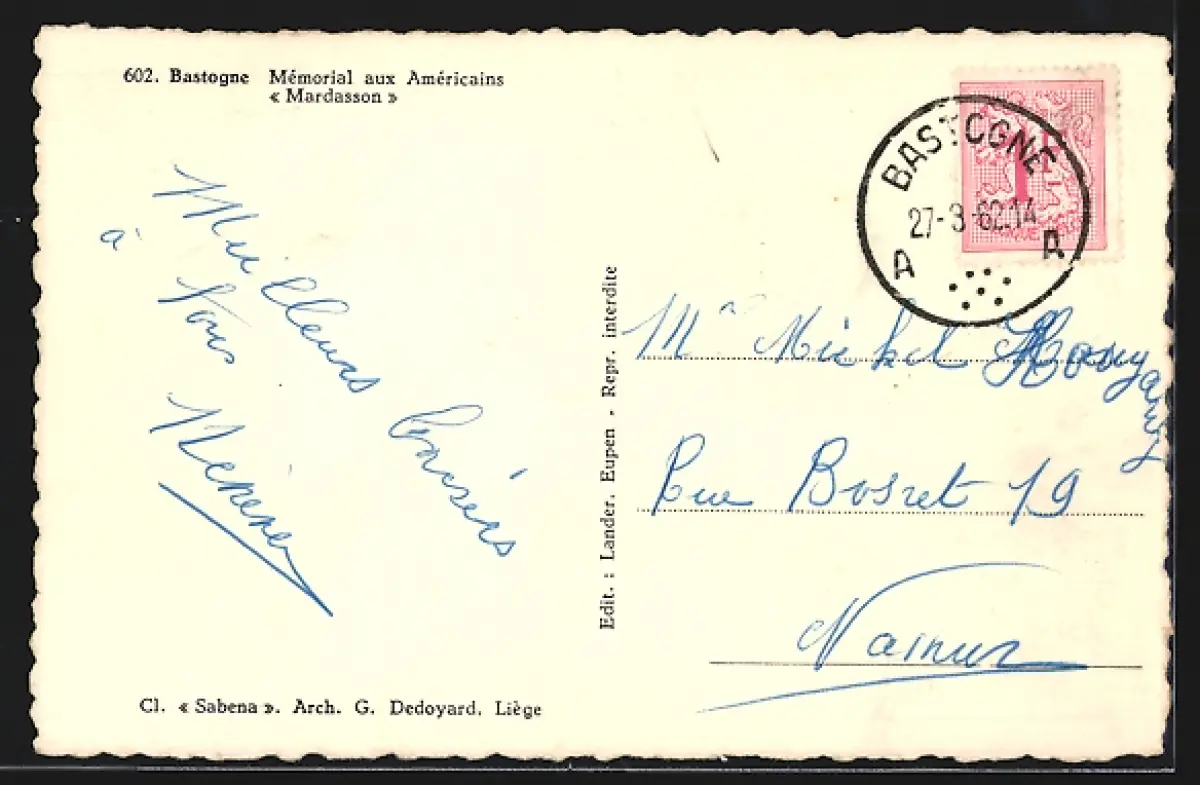 602. Bastogne Mémorial aux Américains
« Mardasson »
Meilleurs baisers
à tous
BASTOGNE
27-3-62.14
A A
1F
Mr Michel
Rue Bosret 19
Namur
Edit. : Lander. Eupen . Repr. interdite
Cl. « Sabena ». Arch. G. Dedoyard. Liège